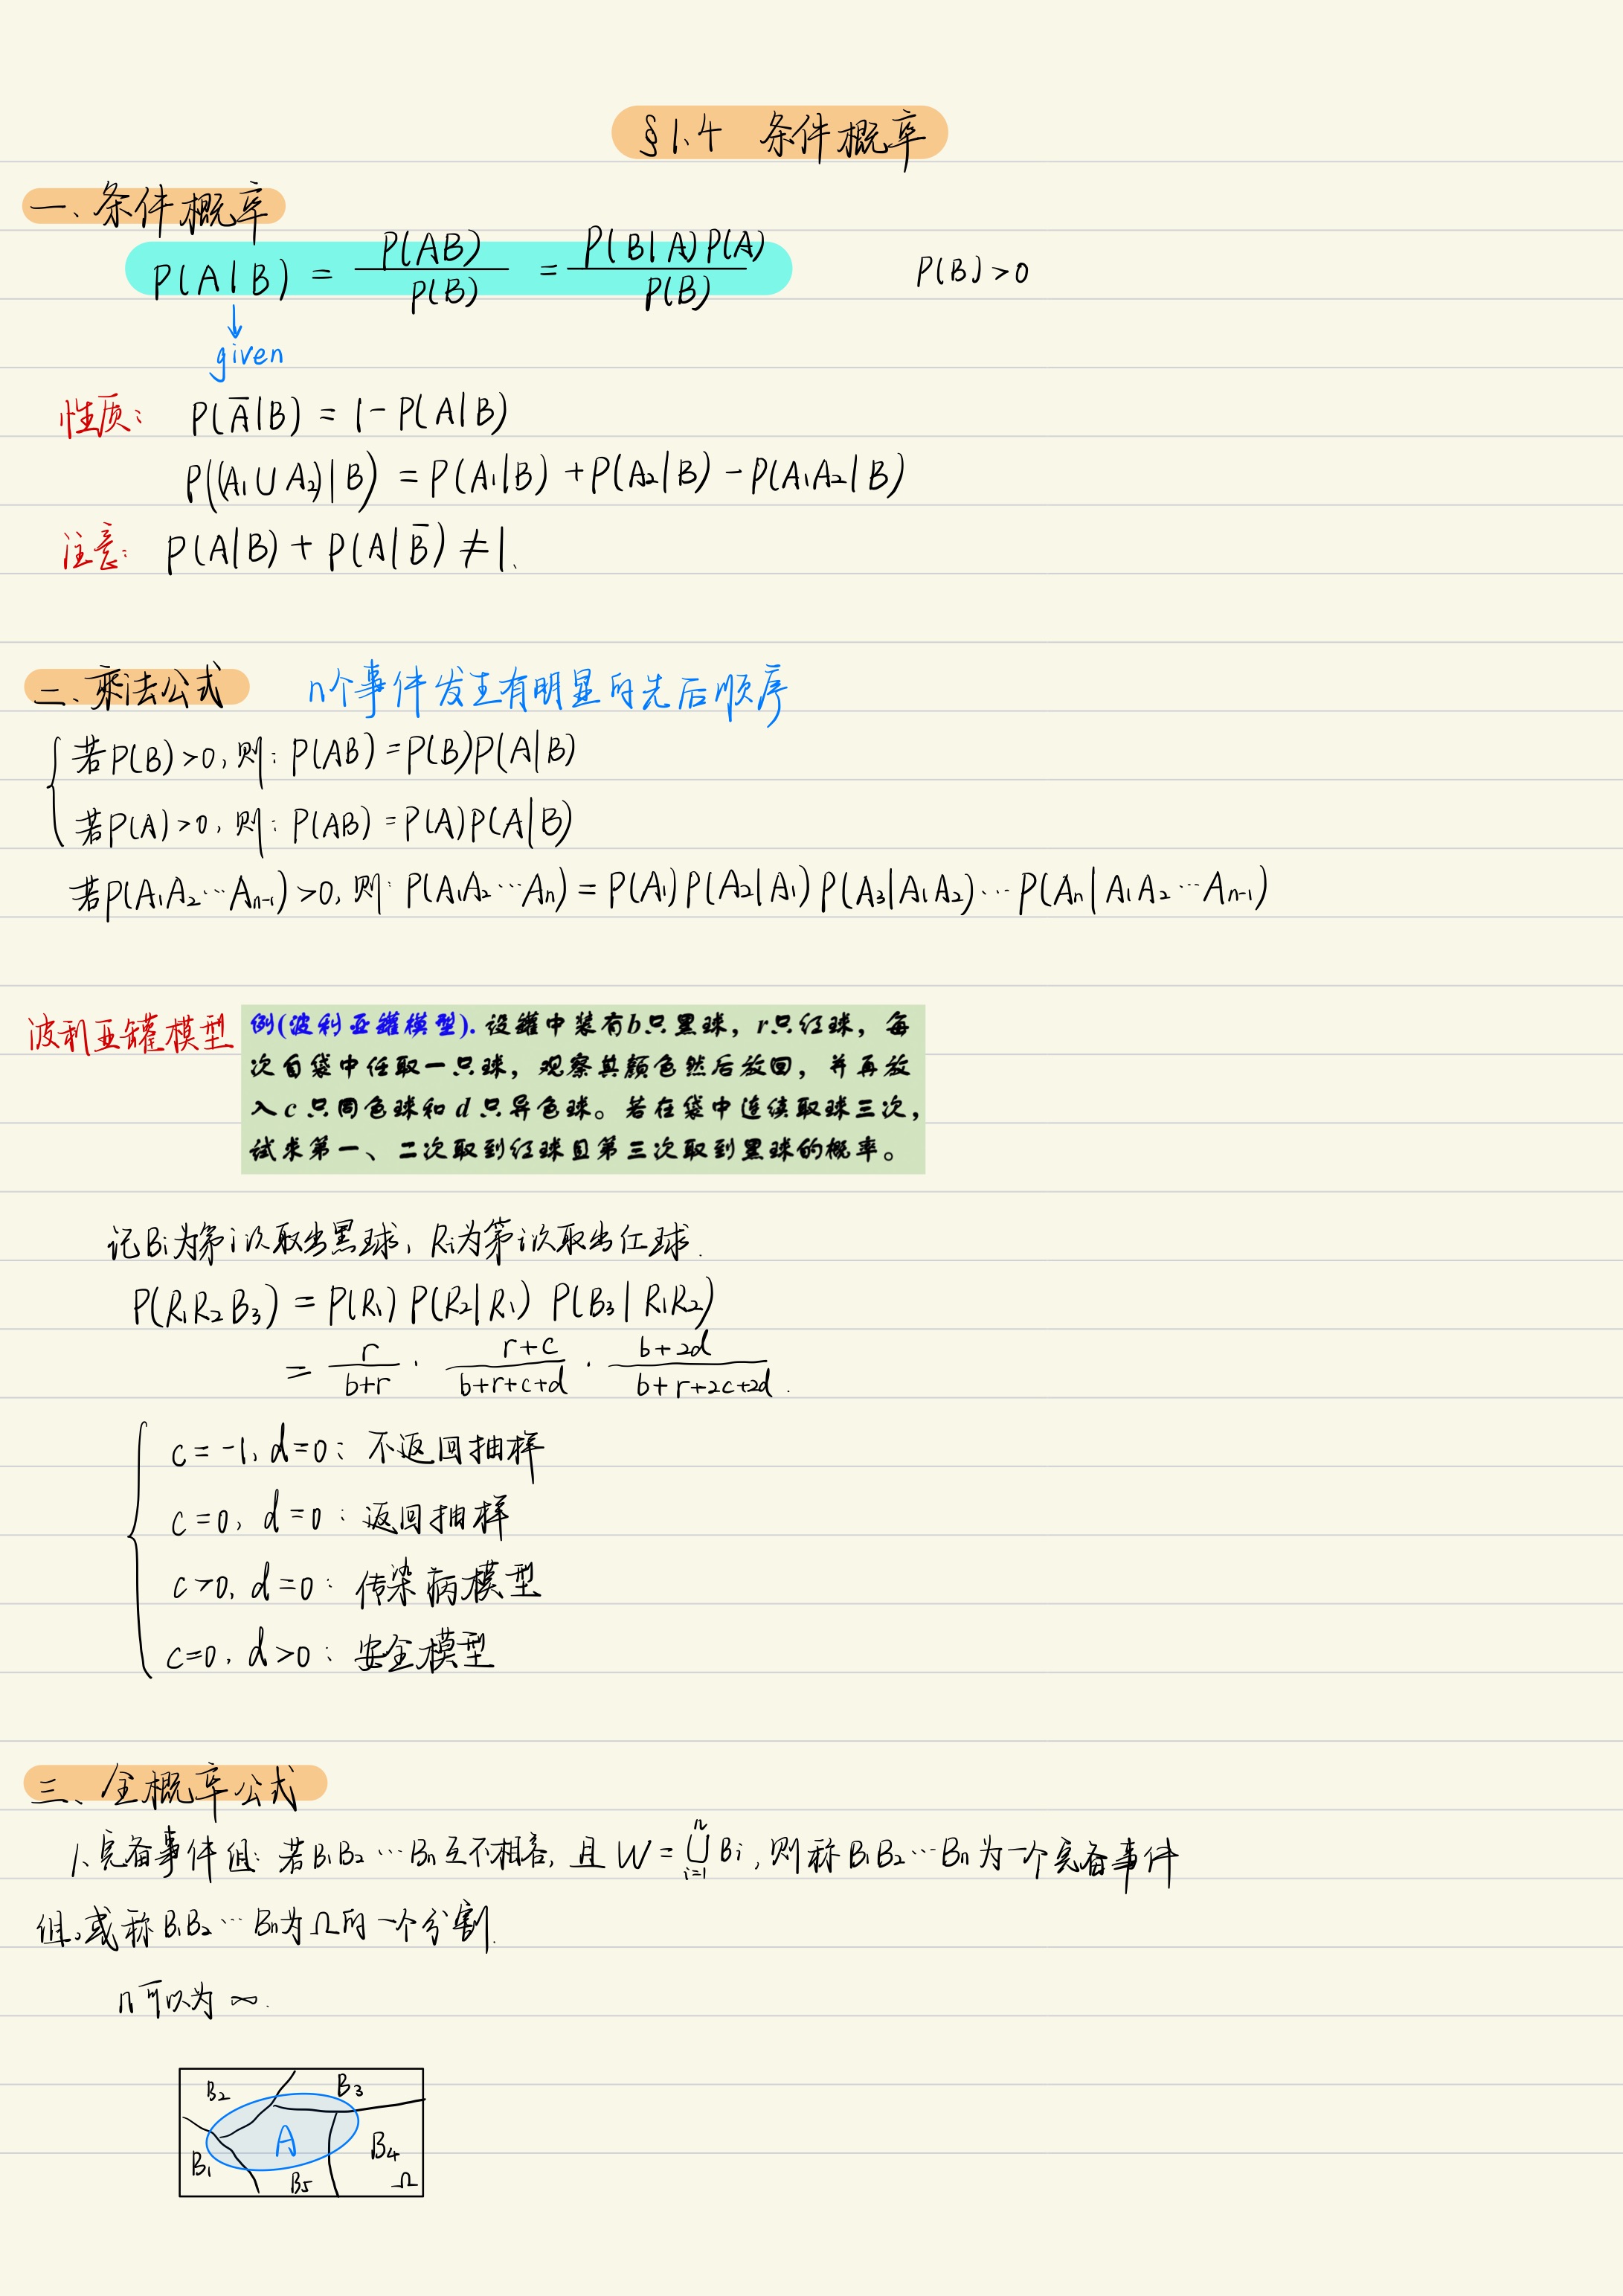 §1.4 条件概率
一、条件概率
P(A|B) = P(AB)/P(B) = P(B|A)P(A)/P(B) P(B)>0
↓
given
性质: P(A̅|B) = 1-P(A|B)
P((A₁∪A₂)|B) = P(A₁|B)+P(A₂|B)-P(A₁A₂|B)
注意: P(A|B)+P(A|B̅)≠1.
二、乘法公式 n个事件发生有明显的先后顺序
若P(B)>0,则: P(AB)=P(B)P(A|B)
若P(A)>0,则: P(AB)=P(A)P(A|B)
若P(A₁A₂⋯Aₙ₋₁)>0,则: P(A₁A₂⋯Aₙ)=P(A₁)P(A₂|A₁)P(A₃|A₁A₂)⋯P(Aₙ|A₁A₂⋯Aₙ₋₁)
波利亚罐模型
例(波利亚罐模型). 设罐中装有b只黑球，r只红球，每
次自袋中任取一只球，观察其颜色然后放回，并再放
入c只同色球和d只异色球。若在袋中连续取球三次，
试求第一、二次取到红球且第三次取到黑球的概率。
记Bi为第i次取出黑球, Ri为第i次取出红球.
P(R₁R₂B₃) = P(R₁)P(R₂|R₁)P(B₃|R₁R₂)
= r/(b+r) · (r+c)/(b+r+c+d) · (b+2d)/(b+r+2c+2d).
c=-1, d=0: 不返回抽样
c=0, d=0: 返回抽样
c>0, d=0: 传染病模型
c=0, d>0: 安全模型
三、全概率公式
1、完备事件组: 若B₁B₂⋯Bₙ互不相容, 且W=⋃ⁿᵢ₌₁Bi, 则称B₁B₂⋯Bₙ为一个完备事件
组,或称B₁B₂⋯Bₙ为Ω的一个分割.
n可以为∞.
B₂ B₃
A
B₁ B₄
B₅ Ω